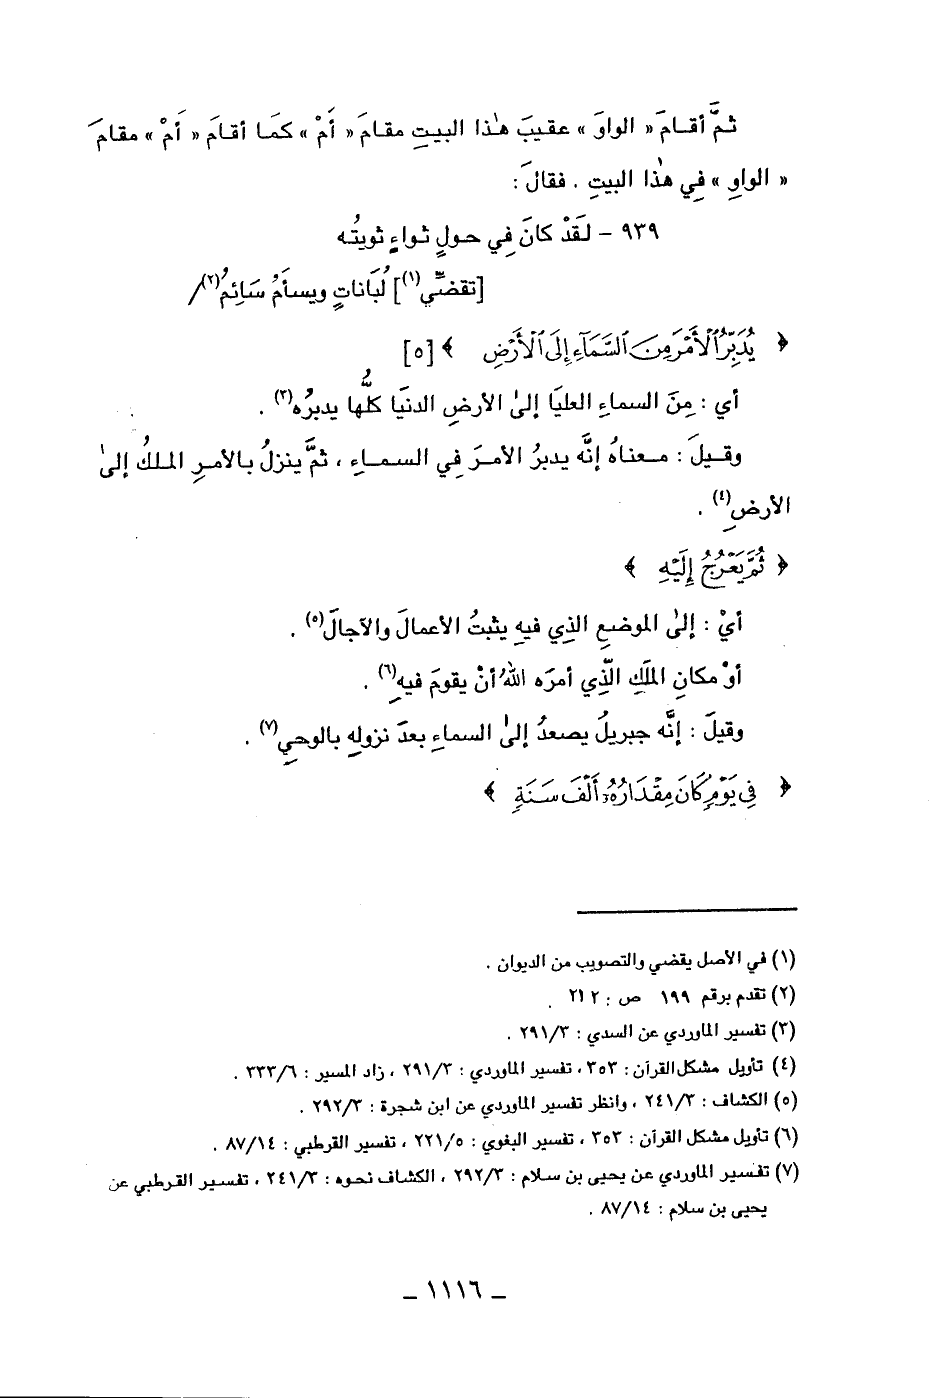 ثمَّ أقامَ « الواوَ » عقيبَ هٰذا البيتِ مقامَ « أمْ » كمَا أقامَ « أمْ » مقامَ
« الواوِ » فِي هٰذا البيتِ . فقالَ :
٩٣٩ – لقَدْ كانَ فِي حولٍ ثواءٍ ثويتُه
[تقضّي(١)] لُبَاناتٍ ويسأمُ سَائِمُ(٢)/
﴿ يُدَبِّرُ ٱلْأَمْرَ مِنَ ٱلسَّمَآءِ إِلَى ٱلْأَرْضِ ﴾ [٥]
أي : مِنَ السماءِ العليَا إلىٰ الأرضِ الدنيَا كلُّها يدبرُه(٣) .
وقيلَ : معناهُ إنَّه يدبرُ الأمرَ فِي السماءِ ، ثمَّ ينزلُ بالأمرِ الملكُ إلىٰ
الأرضِ(٤) .
﴿ ثُمَّ يَعْرُجُ إِلَيْهِ ﴾
أيْ : إلىٰ الموضعِ الذِي فيهِ يثبتُ الأعمالَ والآجالَ(٥) .
أوْ مكانِ الملَكِ الَّذِي أمرَه اللهُ أنْ يقومَ فيهِ(٦) .
وقيلَ : إنَّه جبريلُ يصعدُ إلىٰ السماءِ بعدَ نزولِهِ بالوحيِ(٧) .
﴿ فِى يَوْمٍ كَانَ مِقْدَارُهُۥٓ أَلْفَ سَنَةٍ ﴾
(١) في الأصل يقضي والتصويب من الديوان .
(٢) تقدم برقم ١٩٩ ص : ٢١٢ .
(٣) تفسير الماوردي عن السدي : ٢٩١/٣ .
(٤) تأويل مشكل القرآن : ٣٥٣ ، تفسير الماوردي : ٢٩١/٣ ، زاد المسير : ٣٣٣/٦ .
(٥) الكشاف : ٢٤١/٣ ، وانظر تفسير الماوردي عن ابن شجرة : ٢٩٢/٣ .
(٦) تأويل مشكل القرآن : ٣٥٣ ، تفسير البغوي : ٢٢١/٥ ، تفسير القرطبي : ٨٧/١٤ .
(٧) تفسير الماوردي عن يحيى بن سلام : ٢٩٢/٣ ، الكشاف نحوه : ٢٤١/٣ ، تفسير القرطبي عن
يحيى بن سلام : ٨٧/١٤ .
– ١١١٦ –